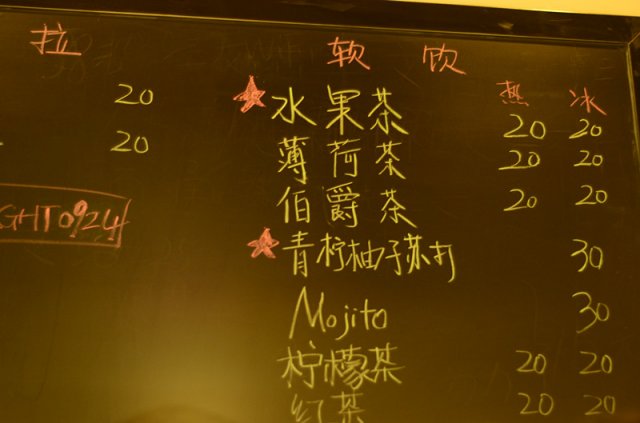 拉
20
20
GHT0924
软饮
热 冰
水果茶 20 20
薄荷茶 20 20
伯爵茶 20 20
青柠柚子苏打 30
Mojito 30
柠檬茶 20 20
红茶 20 20